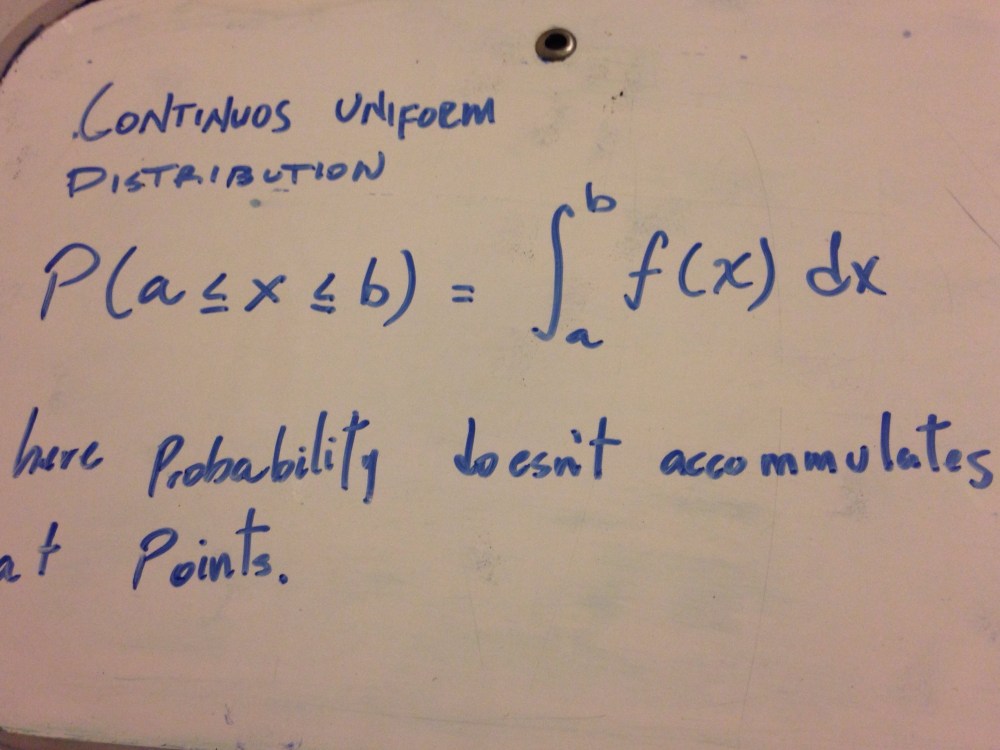 CONTINUOS UNIFORM
DISTRIBUTION
P(a ≤ x ≤ b) = ∫_a^b f(x) dx
here Probability doesn't accommulates
at Points.